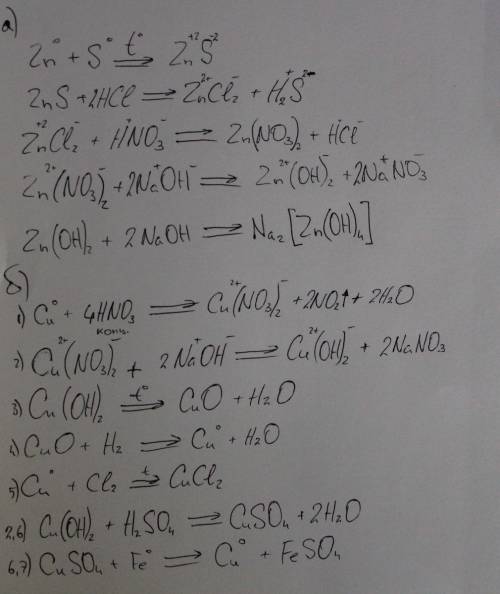 а)
Zn⁰ + S⁰ t°⇌ Zn⁺²S⁻²
ZnS + 2HCl ⇌ Zn²⁺Cl₂⁻ + H₂⁺S²⁻
Zn⁺²Cl₂⁻ + H⁺NO₃⁻ ⇌ Zn(NO₃)₂ + H⁺Cl⁻
Zn²⁺(NO₃)₂⁻ + 2Na⁺OH⁻ ⇌ Zn²⁺(OH)₂⁻ + 2Na⁺NO₃⁻
Zn(OH)₂ + 2NaOH ⇌ Na₂[Zn(OH)₄]
б)
1) Cu⁰ + 4HNO₃ ⇌ Cu²⁺(NO₃)₂⁻ + 2NO₂↑ + 2H₂O
конц.
2) Cu²⁺(NO₃)₂⁻ + 2Na⁺OH⁻ ⇌ Cu²⁺(OH)₂⁻ + 2NaNO₃
3) Cu(OH)₂ t°⇌ CuO + H₂O
4) CuO + H₂ ⇌ Cu⁰ + H₂O
5) Cu⁰ + Cl₂ t⇌ CuCl₂
2,6) Cu(OH)₂ + H₂SO₄ ⇌ CuSO₄ + 2H₂O
6,7) CuSO₄ + Fe⁰ ⇌ Cu⁰ + FeSO₄